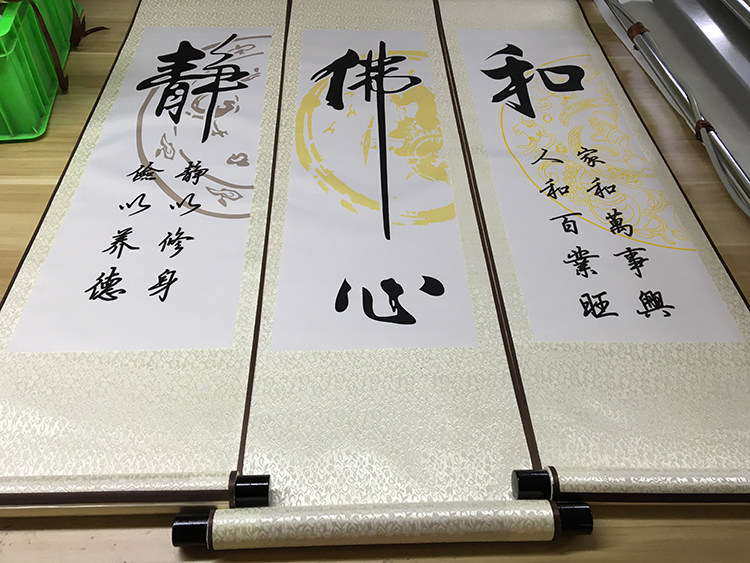 静
静以修身
俭以养德
佛心
和
家和萬事興
人和百業旺